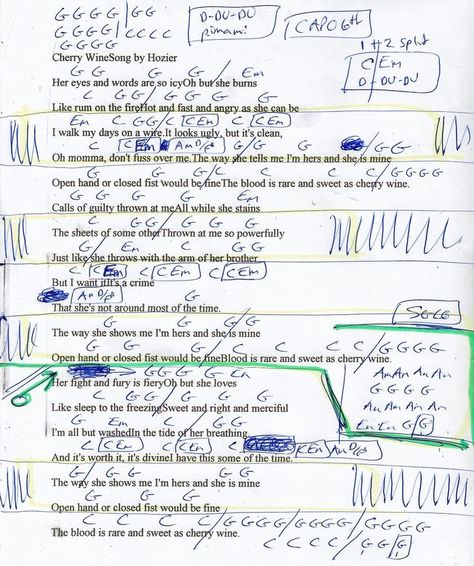 GGGG/GG
D-DU-DU
GGGG/CCCC
pimami
CAPO 6th
GGGG
1+2 split
C Em
D-DU-DU
Cherry WineSong by Hozier
G G / G G / Em
Her eyes and words are so icyOh but she burns
C G G / G G G
Like rum on the fireHot and fast and angry as she can be
Em C GG/C CEm C CEm
I walk my days on a wire.It looks ugly, but it's clean,
C CEm AmD/F# G/G G C/
Oh momma, don't fuss over me.The way she tells me I'm hers and she is mine
G G/C C C C/GGGG
Open hand or closed fist would be fineThe blood is rare and sweet as cherry wine.
G G G G Em
Calls of guilty thrown at meAll while she stains
C GG/G G G
The sheets of some otherThrown at me so powerfully
G/ En C GG/C
Just like she throws with the arm of her brother
C/CEm C CEm C CEm
But I want itIt's a crime
AmD/F# G
That she's not around most of the time.
G G G/G
The way she shows me I'm hers and she is mine
SOLO
C G G/ C C C C/GGGG
Open hand or closed fist would be fineBlood is rare and sweet as cherry wine.
Am Am Am Am
GG G G En
Her fight and fury is fieryOh but she loves
GGGG
C GG/G G G
Like sleep to the freezingSweet and right and merciful
Am Am Am Am
G/ En C GG/C
I'm all but washedIn the tide of her breathing
En En G/G
C CEm C CEm C CEm AmD/F#
And it's worth it, it's divineI have this some of the time.
G/ G G G
The way she shows me I'm hers and she is mine
G/ G G
Open hand or closed fist would be fine
C C C C/GGGG/GGGG/GGGG
The blood is rare and sweet as cherry wine.
C C C C/GGG